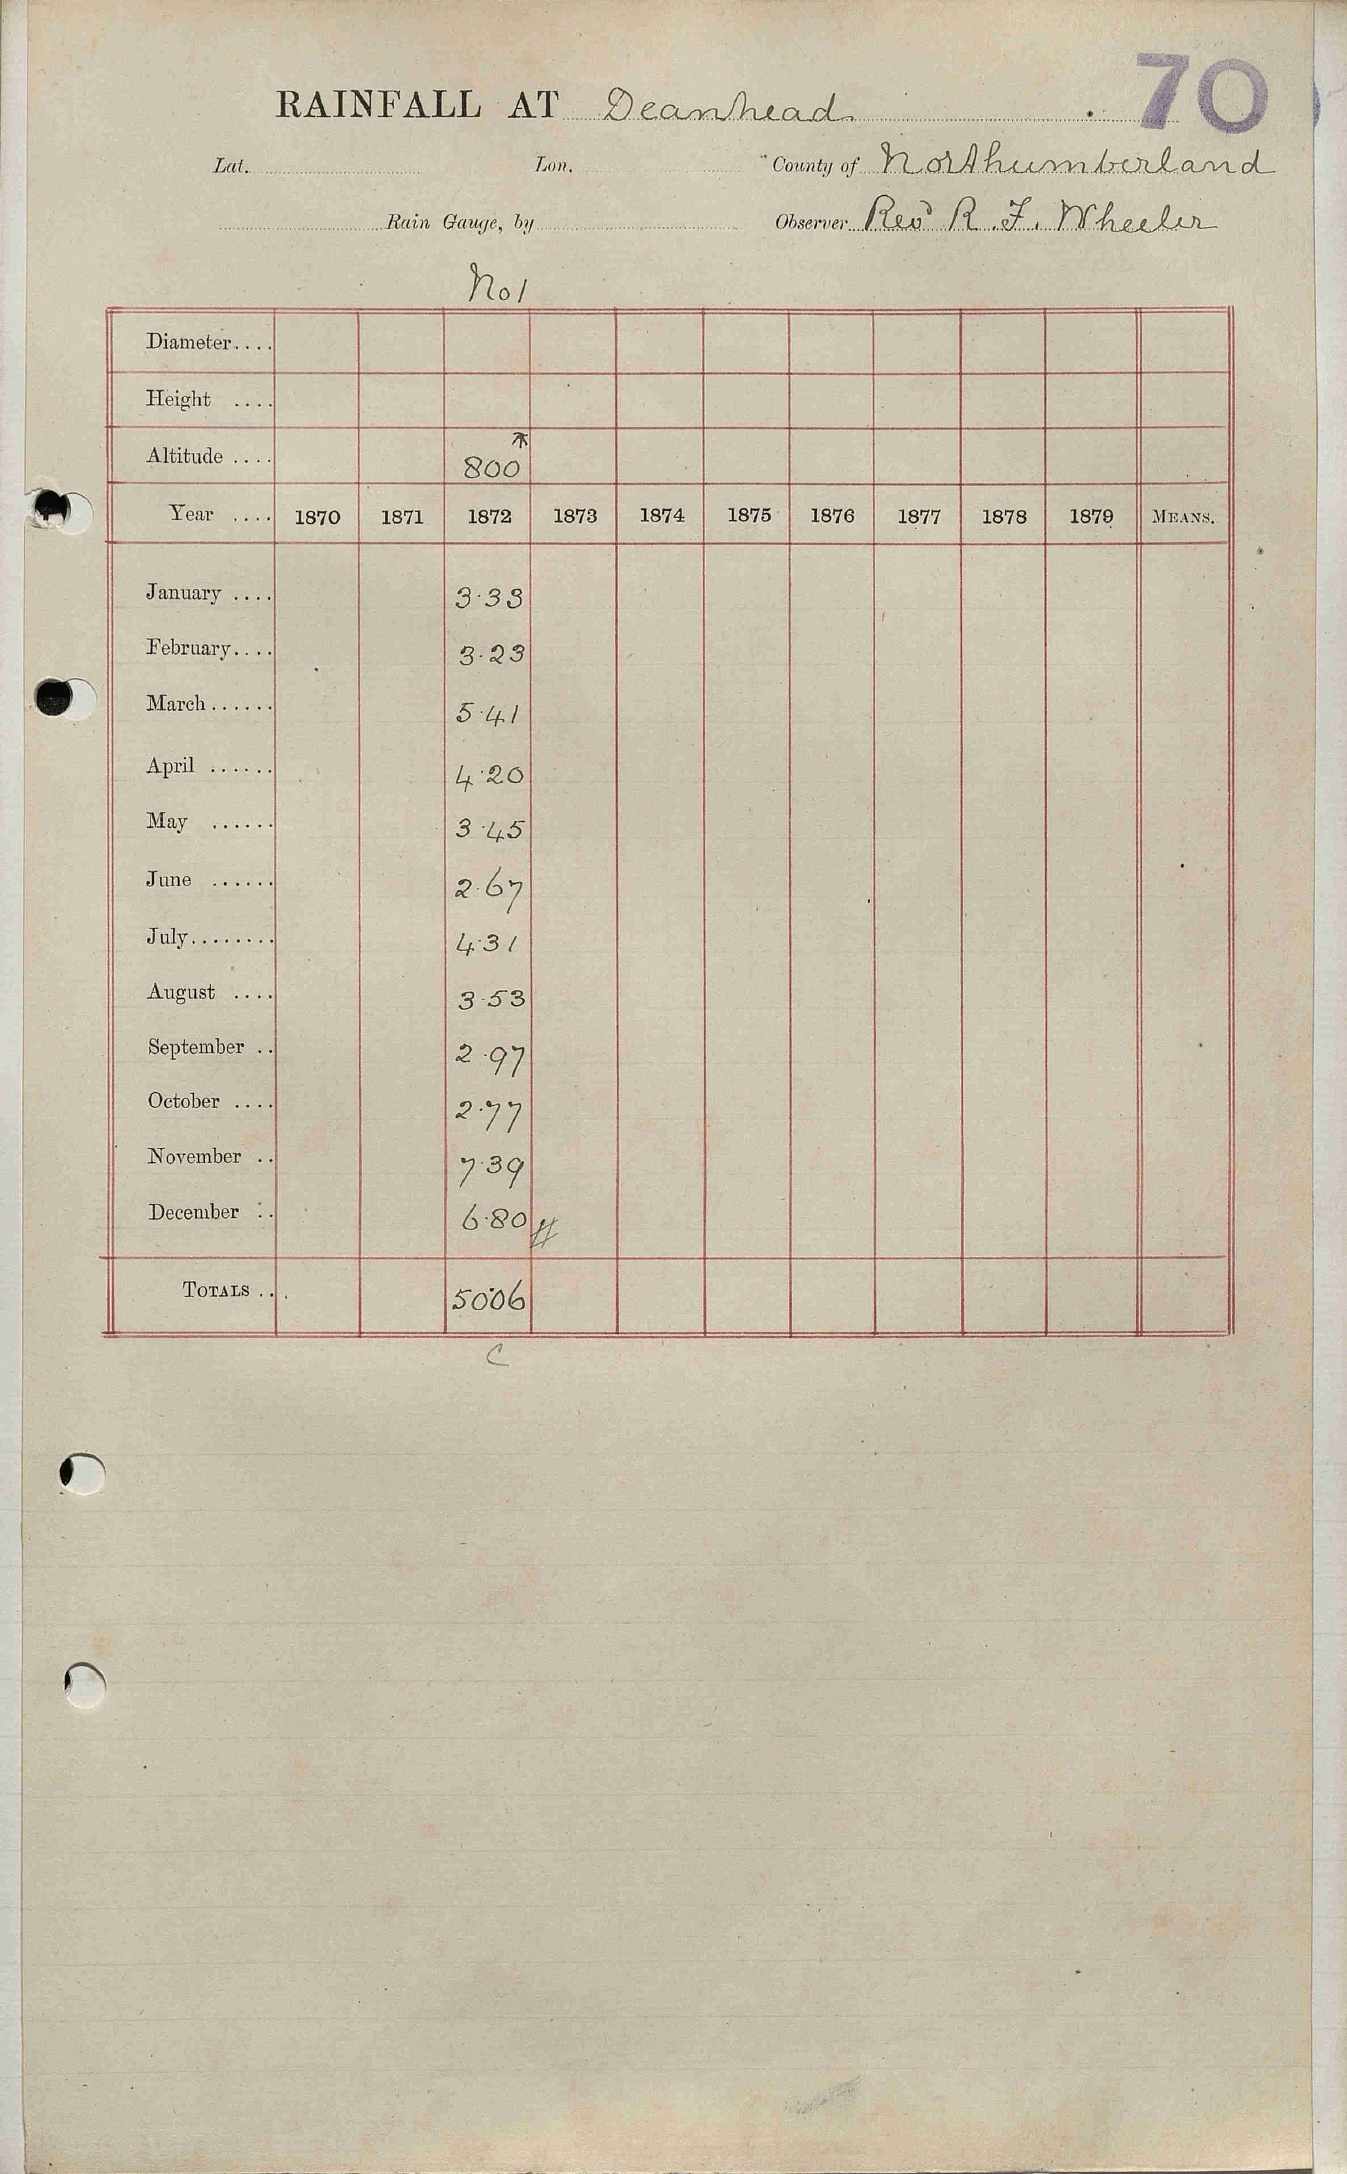 70
RAINFALL AT Deanhead
Lat. Lon. County of Northumberland
Rain Gauge, by Observer Revd R. F. Wheeler
No 1
Diameter....
Height ....
Altitude .... 800
Year .... 1870 1871 1872 1873 1874 1875 1876 1877 1878 1879 MEANS.
January .... 3.33
February.... 3.23
March...... 5.41
April ...... 4.20
May ...... 3.45
June ...... 2.67
July........ 4.31
August .... 3.53
September .. 2.97
October .... 2.77
November .. 7.39
December .. 6.80 //
TOTALS ... 50.06
C